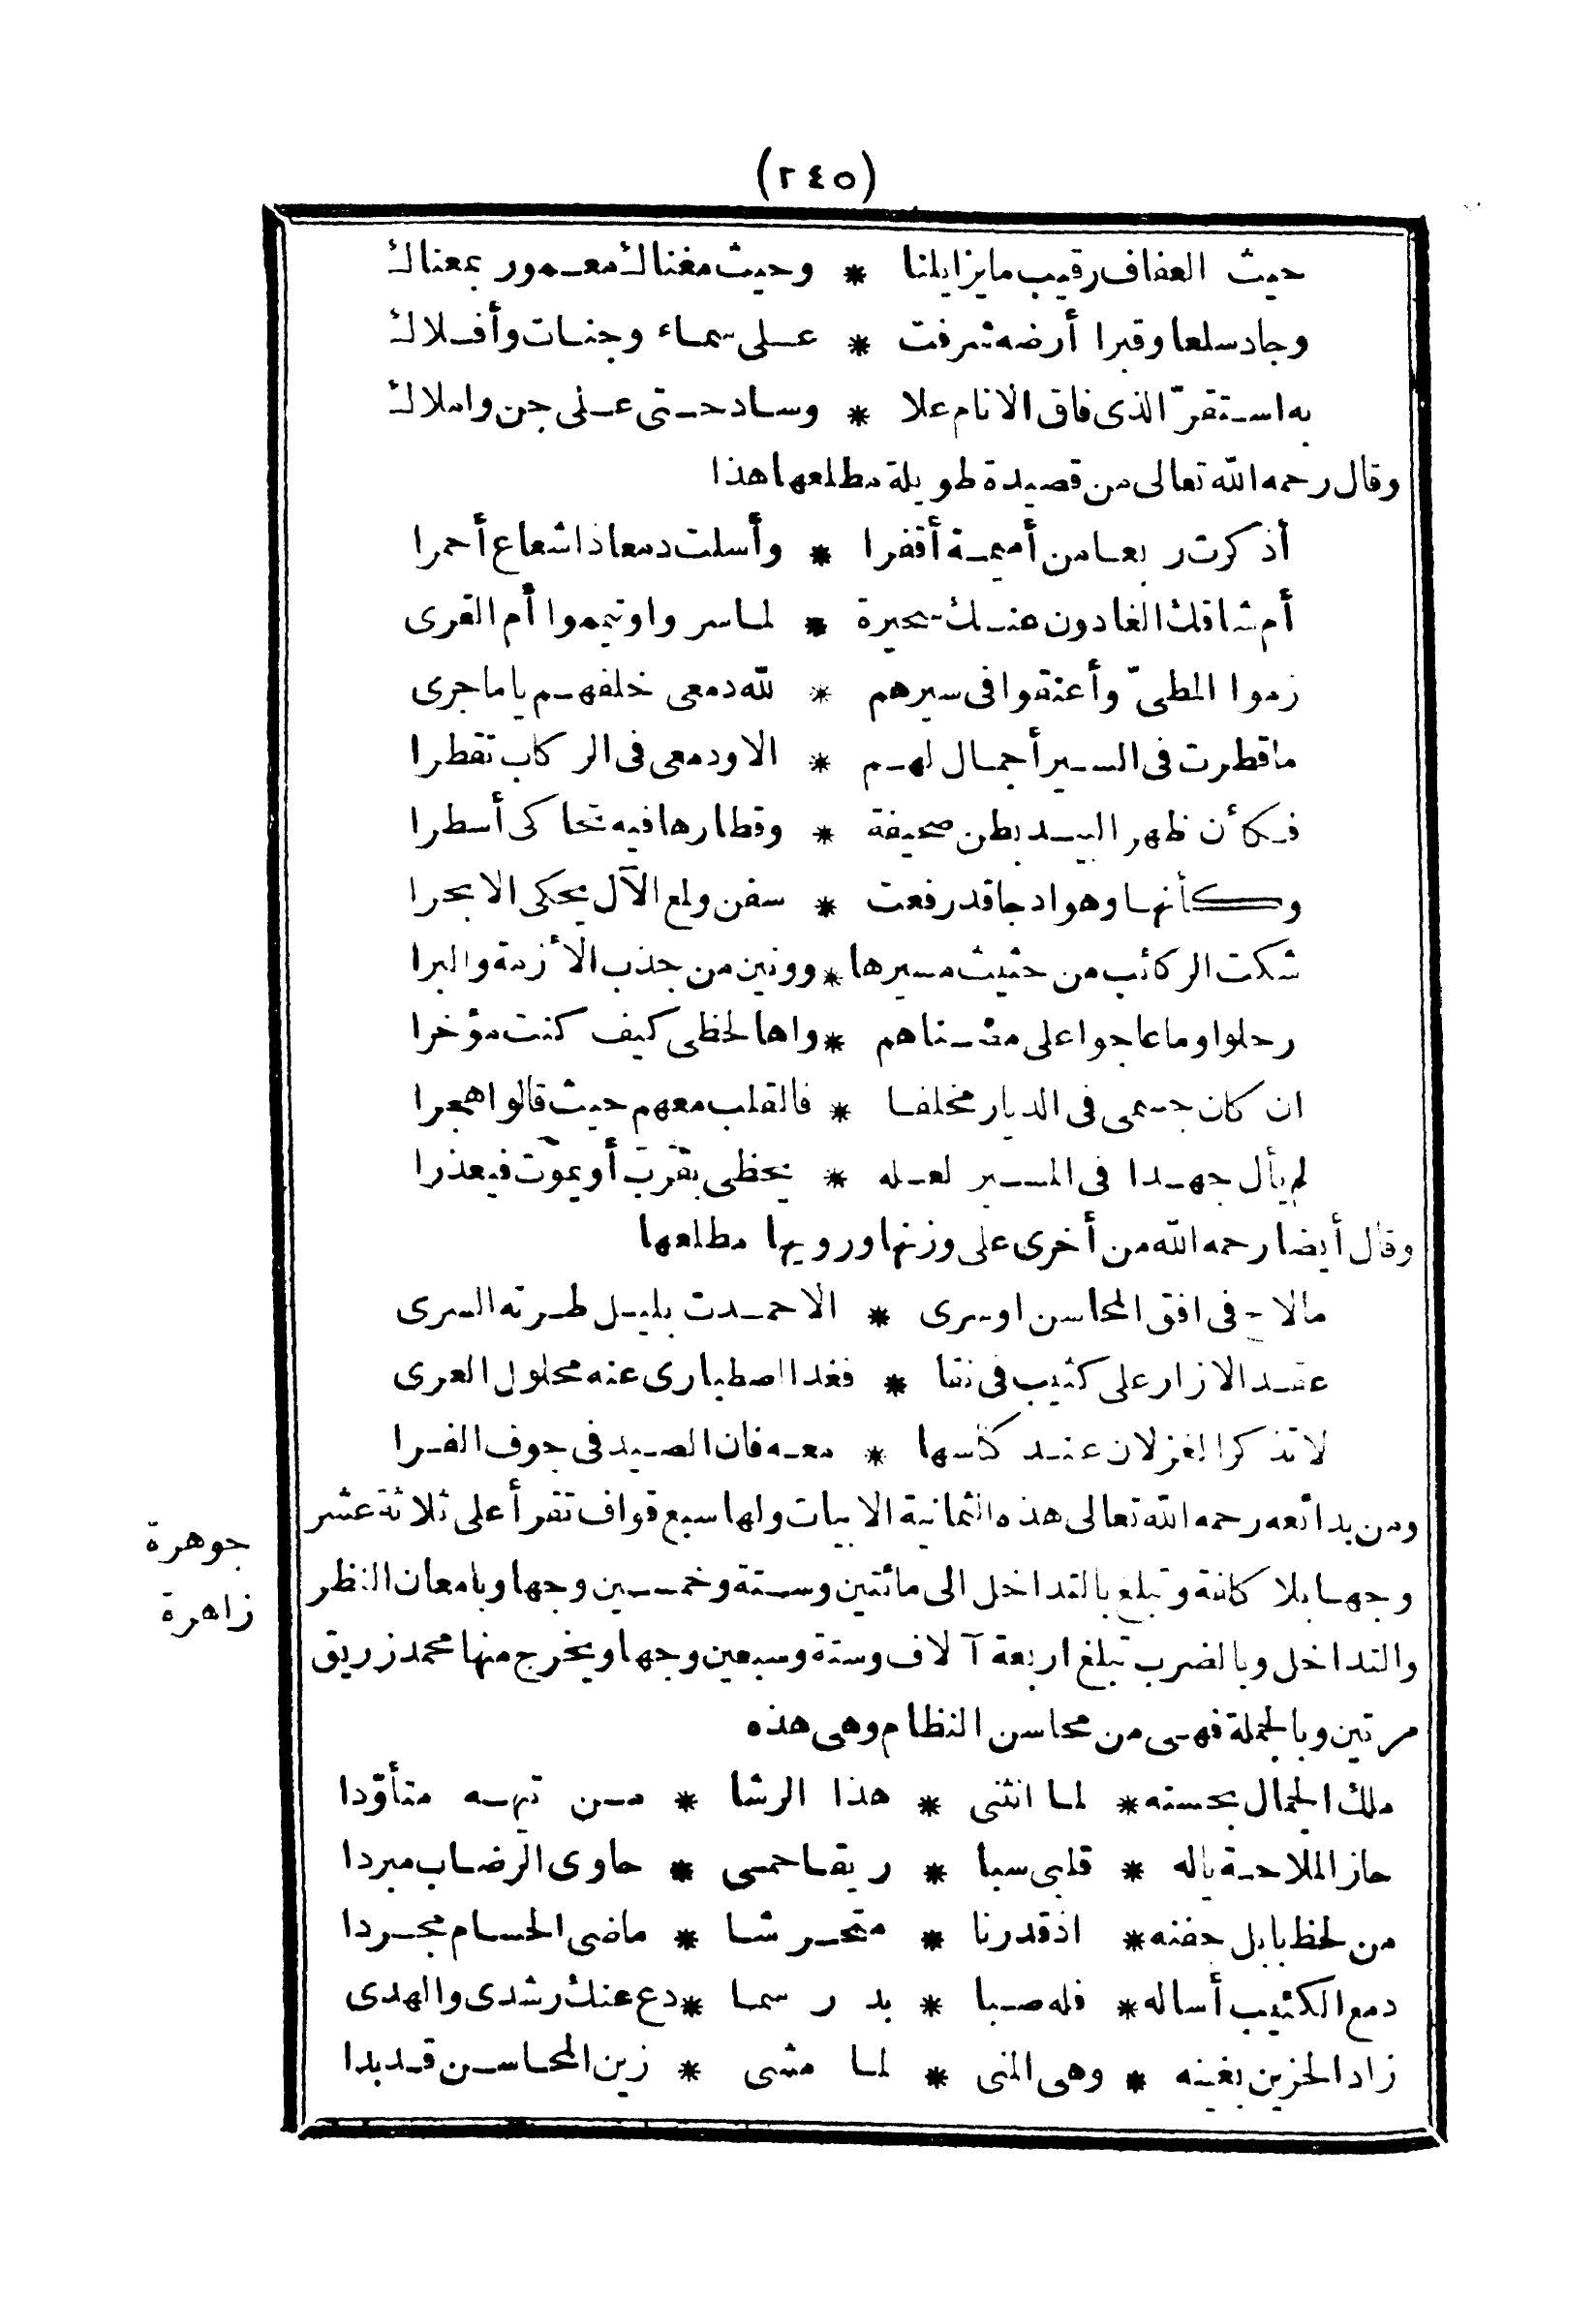 (٢٤٥)
حيث العفاف رقيب مايزايلنا * وحيث مغناك معمور بمعناك
وجادسلعا وقبرا أرضه شرفت * على سماء وجنات وأفلاك
به استقرّ الذى فاق الانام علا * وساد حتى على جن واملاك
وقال رحمه الله تعالى من قصيدة طويلة مطلعها هذا
أذكرت ربعا من أميمة أقفرا * وأسلت دمعا ذا شعاع أحمرا
أم شاقك الغادون عنك سحيرة * لما سروا وتيمموا أم القرى
زموا المطىّ وأعنقوا فى سيرهم * لله دمعى خلفهم ياما جرى
ماقطرت فى السير أجمال لهم * الا ودمعى فى الركاب تقطرا
فكأن ظهر البيد بطن صحيفة * وقطارها فيه تحاكى أسطرا
وكأنها وهوادجا قد رفعت * سفن ولمع الآل يحكى الابحرا
شكت الركائب من حثيث مسيرها * وونين من جذب الأزمة والبرا
رحلوا وما عاجوا على مضناهم * واها لحظى كيف كنت مؤخرا
ان كان جسمى فى الديار مخلفا * فالقلب معهم حيث قالوا هجرا
لم يأل جهدا فى المسير لعله * يحظى بقرب أو يموت فيعذرا
وقال أيضا رحمه الله من أخرى على وزنها ورويها مطلعها
مالاح فى افق المحاسن اوسرى * الا حمدت بليل طرته السرى
عقد الازار على كثيب فى نقا * فغدا اصطبارى عنه محلول العرى
لا تذكر الغزلان عند كناسها * معه فان الصيد فى جوف الفرا
ومن بدائعه رحمه الله تعالى هذه الثمانية الابيات ولها سبع قواف تقرأ على ثلاثة عشر
وجها بلا كلفة وتبلغ بالتداخل الى مائتين وستة وخمسين وجها وبامعان النظر
والتداخل وبالضرب تبلغ اربعة آلاف وستة وسبعين وجها ويخرج منها محمد زريق
مرتين وبالجملة فهى من محاسن النظام وهى هذه
جوهرة
زاهرة
ملك الجمال بحسنه * لما انثنى * هذا الرشا * من تيهه متأوّدا
حاز الملاحة ياله * قلبى سبا * ريقا حمى * حاوى الرضاب مبردا
من لحظ بابل جفنه * اذ قد رنا * متحرشا * ماضى الحسام مجردا
دمع الكئيب أساله * فله صبا * بدر سما * دع عنك رشدى والهدى
زاد الحزين بغينه * وهى المنى * لما مشى * زين المحاسن قد بدا